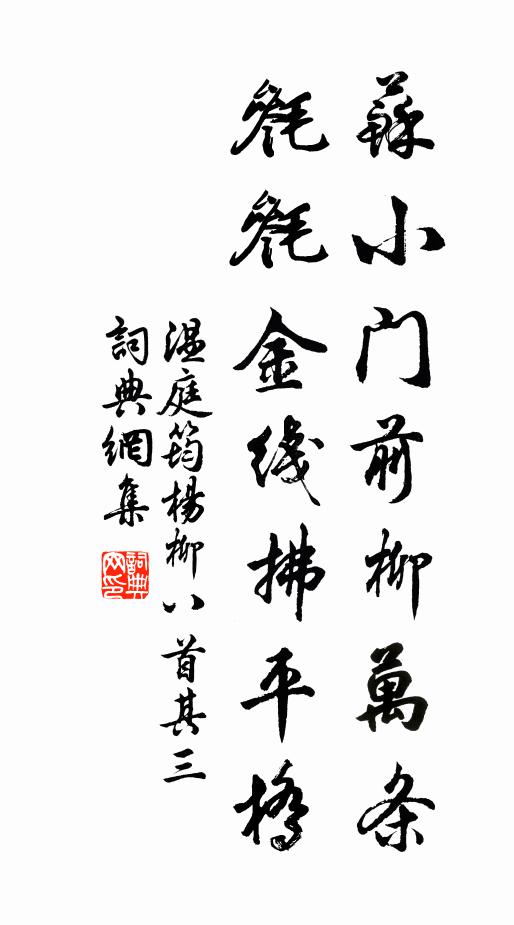 蘇小门前柳萬条
毿毿金线拂平橋
温庭筠楊柳八首其三
詞典網集
詞典网印